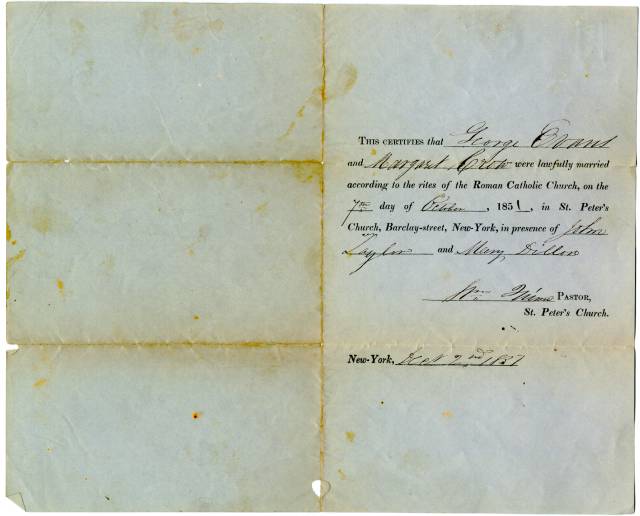 THIS CERTIFIES that George Evans
and Margaret Crow were lawfully married
according to the rites of the Roman Catholic Church, on the
7th day of October, 1851, in St. Peter's
Church, Barclay-street, New-York, in presence of John
Taylor and Mary Dillon
Wm Quinn PASTOR,
St. Peter's Church.
New-York, 2nd 1857